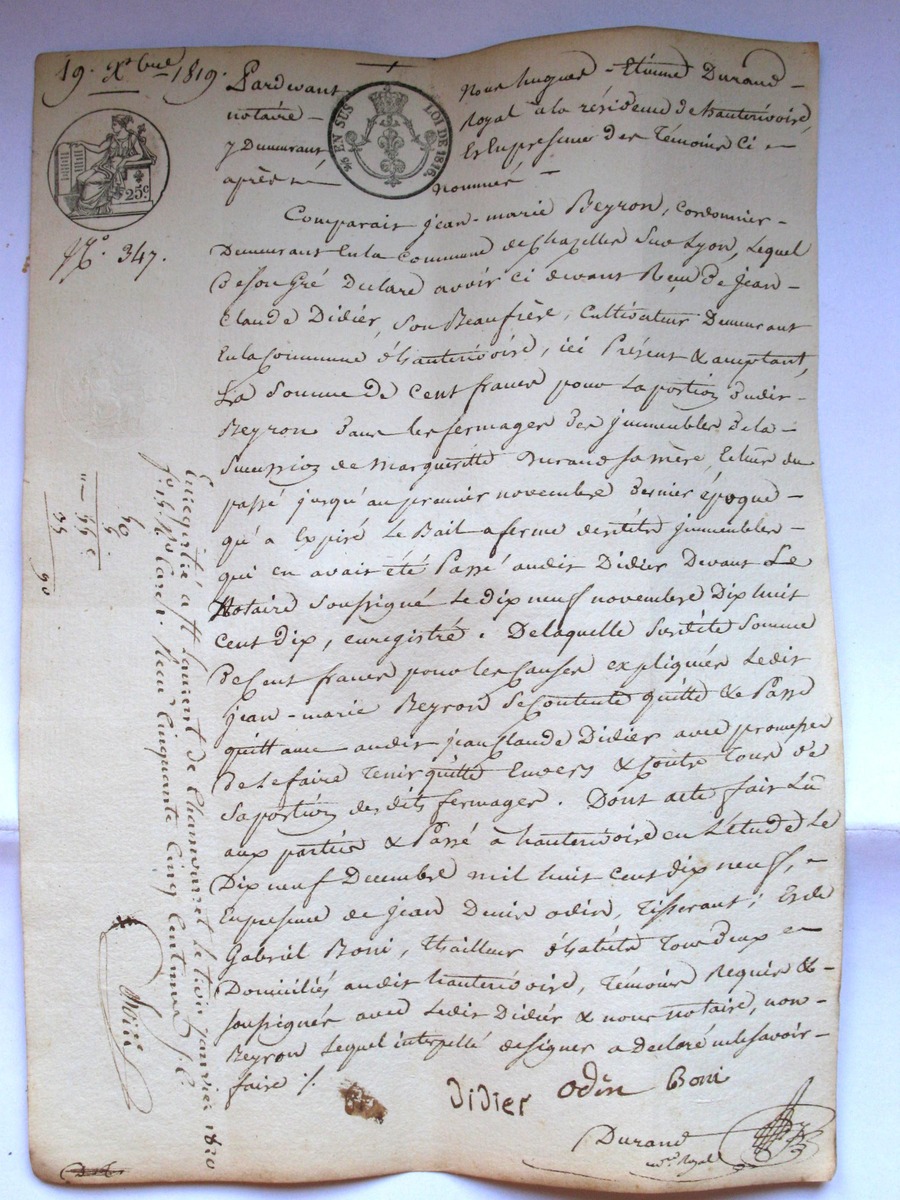 19. Xbre 1819.
Pardevant Nous hugues - Etienne Durand
notaire - Royal à la résidence d'hauterivoire,
y Demeurant, Et en presence des Témoins Ci -
après nommés -
EN SUS LOI DE 1816.
25c
No. 347.
Comparait jean-marie Beyron, Cordonnier -
Demeurant En la commune de Chazelles Sur Lyon, Lequel
de son Gré Declare avoir ci devant Reçu de jean -
Claude Didier, son Beaufrère, Cultivateur Demeurant
En la Commune d'hauterivoire, ici Présent & acceptant,
La Somme de Cent francs pour La portion dudit -
Beyron dans les fermages des jmmeubles de la -
Succession de Margueritte Durand sa mère, Echus du
passé jusqu'au premier novembre dernier époque -
qu'a Expiré Le Bail a ferme desdits jmmeubles -
qui en avait été Passé audit Didier Devant Le
Notaire Soussigné Le dix neuf novembre Dix huit
Cent Dix, enregistré. De laquelle susdite Somme
de Cent francs pour les Causes expliquées Ledit
jean-marie Beyron Se Contente quitte & Passe
quittance audit jean Claude Didier avec promesse
de Le faire Tenir quitte Envers & Contre Tous de
Sa portion desdits fermages. Dont acte fait Lu
aux parties & Passé à hauterivoire en L'étude Le
Dix neuf Decembre mil huit Cent dix neuf, -
En presence de jean Denis odin, Tisserant, Et de
Gabriel Boni, Thailleur d'habits Tous deux -
Domiciliés audit hauterivoire, Témoins Requis & -
soussignés avec Ledit Didier & nous notaire, non -
Beyron Lequel interpellé de signer a Declaré ne le savoir -
faire /.
Didier odin Boni
Durand
nre. Royal
Enregistré a St Laurent de Chamousset le trois janvier 1820
Reçu Cinquante Cinq Centimes